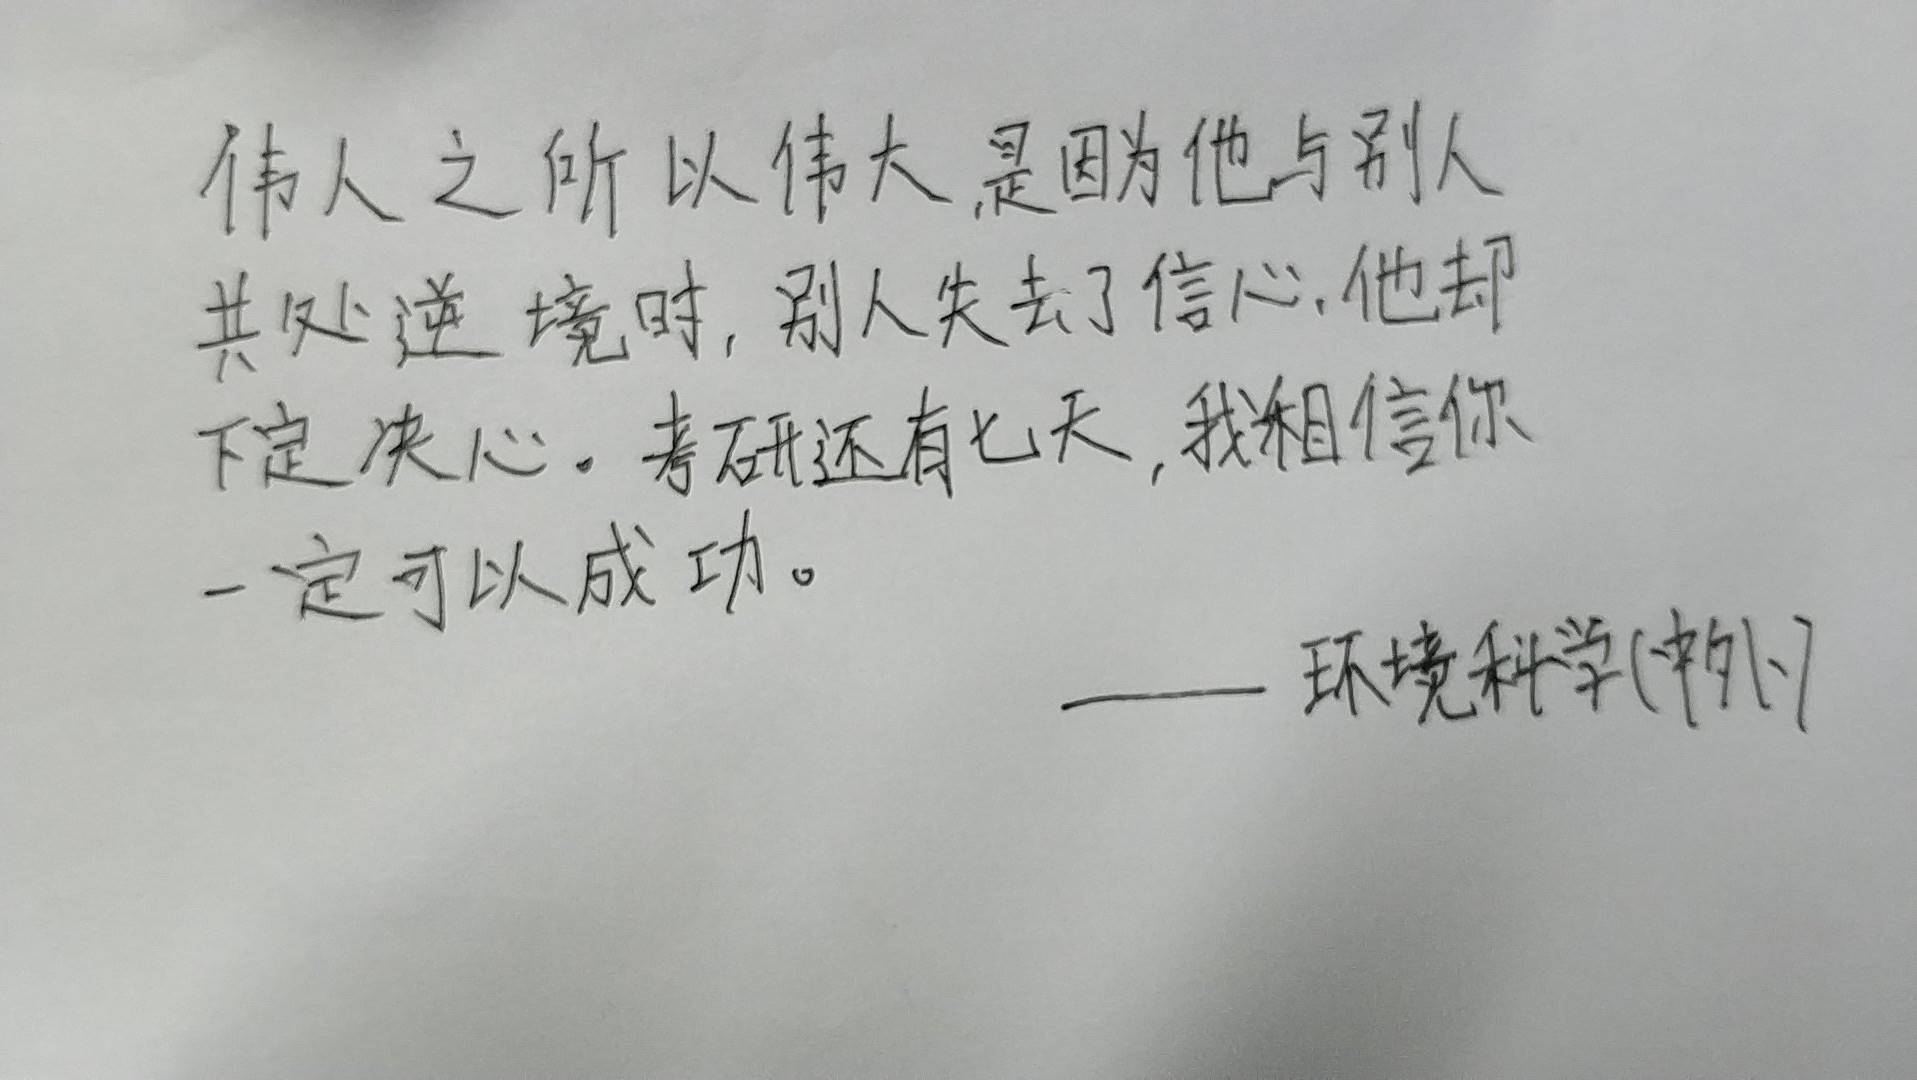 伟人之所以伟大,是因为他与别人
共处逆境时,别人失去了信心,他却
下定决心。考研还有七天,我相信你
一定可以成功。
——环境科学(中外)